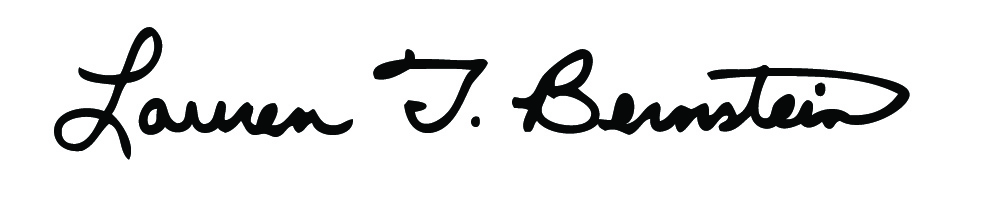 Lauren T. Bernstein